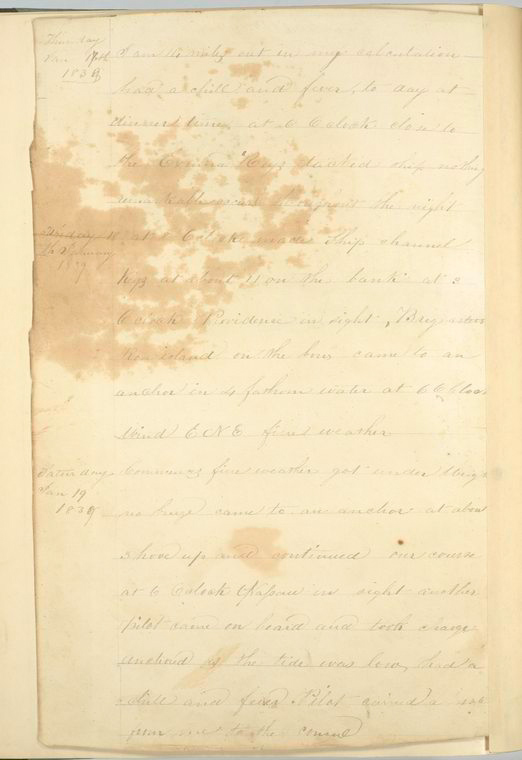 Thursday
Jan 17th
1839
I am 14 miles out in my calculation
had a chill and fever, to day at
dinner time, at 6 Oclock close to
the Keys tacked ship nothing
remarkable occurs throughout the night
Friday 18
th January
1839
at 8 Oclock made Ship channel
Keys at about 11 on the bank at 3
Oclock Providence in sight,
island on the bow came to an
anchor in 4 fathom water at 6 Ocloc
Wind E N E fine weather
Saturday
Jan 19
1839
Commences fine weather got under
no came to an anchor at about
3 hove up and continued our course
at 6 Oclock Nassau in sight another
pilot came on board and took charge
anchored as the tide was low, had a
chill and fever Pilot carried a
me to the consul